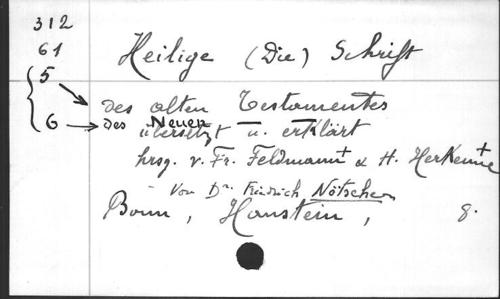 312
61
Heilige (Die) Schrift
5
des alten Testamentes
6 des Neuen
übersetzt u. erklärt
hrsg. v. Fr. Feldmann+ & H. Herkenne+
Von Dr. Friedrich Nötscher
Bonn, Hanstein, 8.